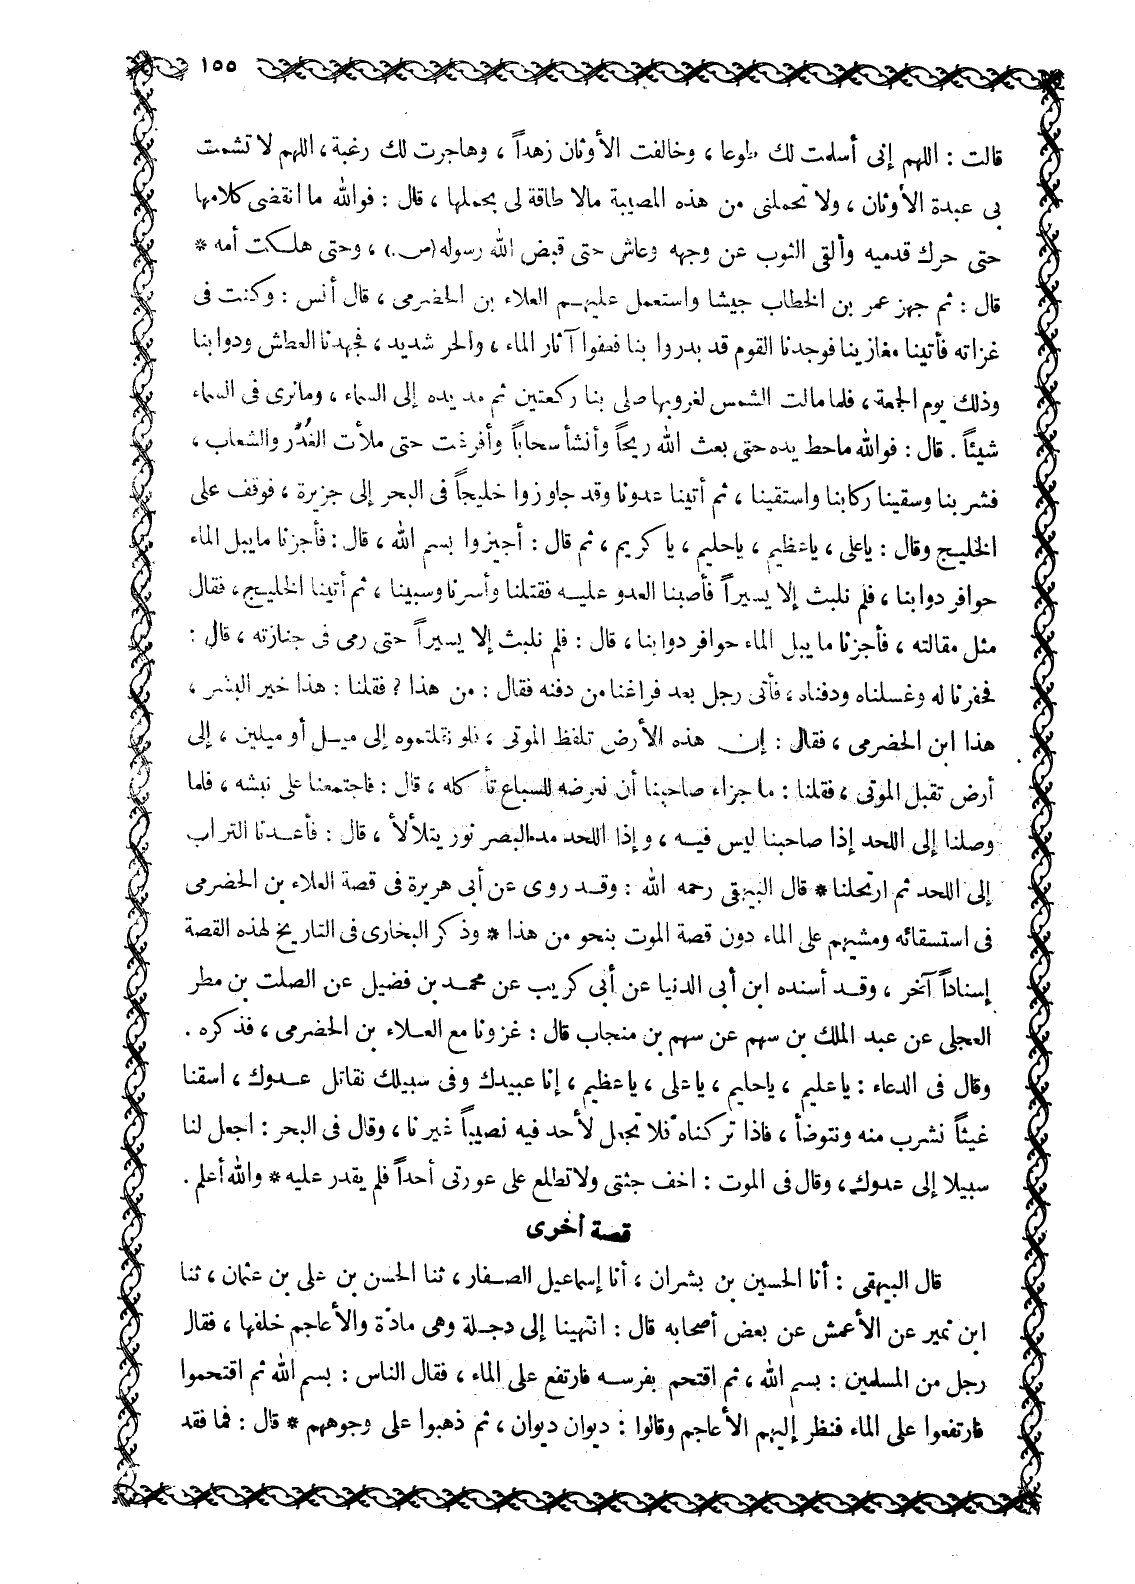 ١٥٥
قالت : اللهم إنى أسلمت لك طوعا ، وخالفت الأوثان زهداً ، وهاجرت لك رغبة ، اللهم لا تشمت
بى عبدة الأوثان ، ولا تحملنى من هذه المصيبة مالا طاقة لى بحملها ، قال : فوالله ما انقضى كلامها
حتى حرك قدميه وألقى الثوب عن وجهه وعاش حتى قبض الله رسوله (ص) ، وحتى هلكت أمه *
قال : ثم جهز عمر بن الخطاب جيشا واستعمل عليهم العلاء بن الحضرمى ، قال أنس : وكنت فى
غزاته فأتينا مغازينا فوجدنا القوم قد بدروا بنا فعفوا آثار الماء ، والحر شديد ، فجهدنا العطش ودوابنا
وذلك يوم الجمعة ، فلما مالت الشمس لغروبها صلى بنا ركعتين ثم مد يده إلى السماء ، ومانرى فى السماء
شيئاً . قال : فوالله ماحط يده حتى بعث الله ريحاً وأنشأ سحاباً وأفرغت حتى ملأت الغُدُر والشعاب ،
فشربنا وسقينا ركابنا واستقينا ، ثم أتينا عدونا وقد جاوزوا خليجاً فى البحر إلى جزيرة ، فوقف على
الخليج وقال : ياعلى ، ياعظيم ، ياحليم ، يا كريم ، ثم قال : أجيزوا بسم الله ، قال : فأجزنا مايبل الماء
حوافر دوابنا ، فلم نلبث إلا يسيراً فأصبنا العدو عليه فقتلنا وأسرنا وسبينا ، ثم أتينا الخليج ، فقال
مثل مقالته ، فأجزنا ما يبل الماء حوافر دوابنا ، قال : فلم نلبث إلا يسيراً حتى رمى فى جنازته ، قال :
فحفرنا له وغسلناه ودفناه ، فأتى رجل بعد فراغنا من دفنه فقال : من هذا ؟ فقلنا : هذا خير البشر ،
هذا ابن الحضرمى ، فقال : إن هذه الأرض تلفظ الموتى ، فلو نقلتموه إلى ميل أو ميلين ، إلى
أرض تقبل الموتى ، فقلنا : ما جزاء صاحبنا أن نعرضه للسباع تأكله ، قال : فاجتمعنا على نبشه ، فلما
وصلنا إلى اللحد إذا صاحبنا ليس فيه ، وإذا اللحد مد البصر نور يتلألأ ، قال : فأعدنا التراب
إلى اللحد ثم ارتحلنا * قال البيهقى رحمه الله : وقد روى عن أبى هريرة فى قصة العلاء بن الحضرمى
فى استسقائه ومشيهم على الماء دون قصة الموت بنحو من هذا * وذكر البخارى فى التاريخ لهذه القصة
إسناداً آخر ، وقد أسنده ابن أبى الدنيا عن أبى كريب عن محمد بن فضيل عن الصلت بن مطر
العجلى عن عبد الملك بن سهم عن سهم بن منجاب قال : غزونا مع العلاء بن الحضرمى ، فذكره .
وقال فى الدعاء : يا عليم ، ياحليم ، ياعلى ، ياعظيم ، إنا عبيدك وفى سبيلك نقاتل عدوك ، اسقنا
غيثاً نشرب منه ونتوضأ ، فاذا تركناه فلا تجعل لأحد فيه نصيباً غيرنا ، وقال فى البحر : اجعل لنا
سبيلا إلى عدوك ، وقال فى الموت : اخف جثتى ولا تطلع على عورتى أحداً فلم يقدر عليه * والله أعلم .
قصة أخرى
قال البيهقى : أنا الحسين بن بشران ، أنا إسماعيل الصفار ، ثنا الحسن بن على بن عثمان ، ثنا
ابن نمير عن الأعمش عن بعض أصحابه قال : انتهينا إلى دجلة وهى مادّة والأعاجم خلفها ، فقال
رجل من المسلمين : بسم الله ، ثم اقتحم بفرسه فارتفع على الماء ، فقال الناس : بسم الله ثم اقتحموا
فارتفعوا على الماء فنظر إليهم الأعاجم وقالوا : ديوان ديوان ، ثم ذهبوا على وجوههم * قال : فما فقد